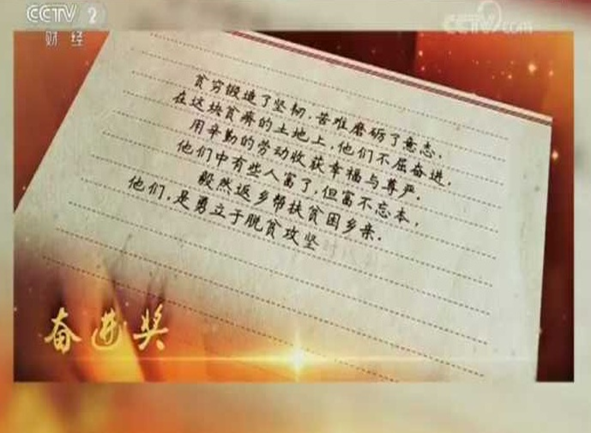 CCTV 2
财经
CCTV.com
贫穷锻造了坚韧,苦难磨砺了意志,
在这块贫瘠的土地上,他们不屈奋进,
用辛勤的劳动收获幸福与尊严,
他们中有些人富了,但富不忘本,
毅然返乡帮扶贫困乡亲。
他们,是勇立于脱贫攻坚
奋进奖